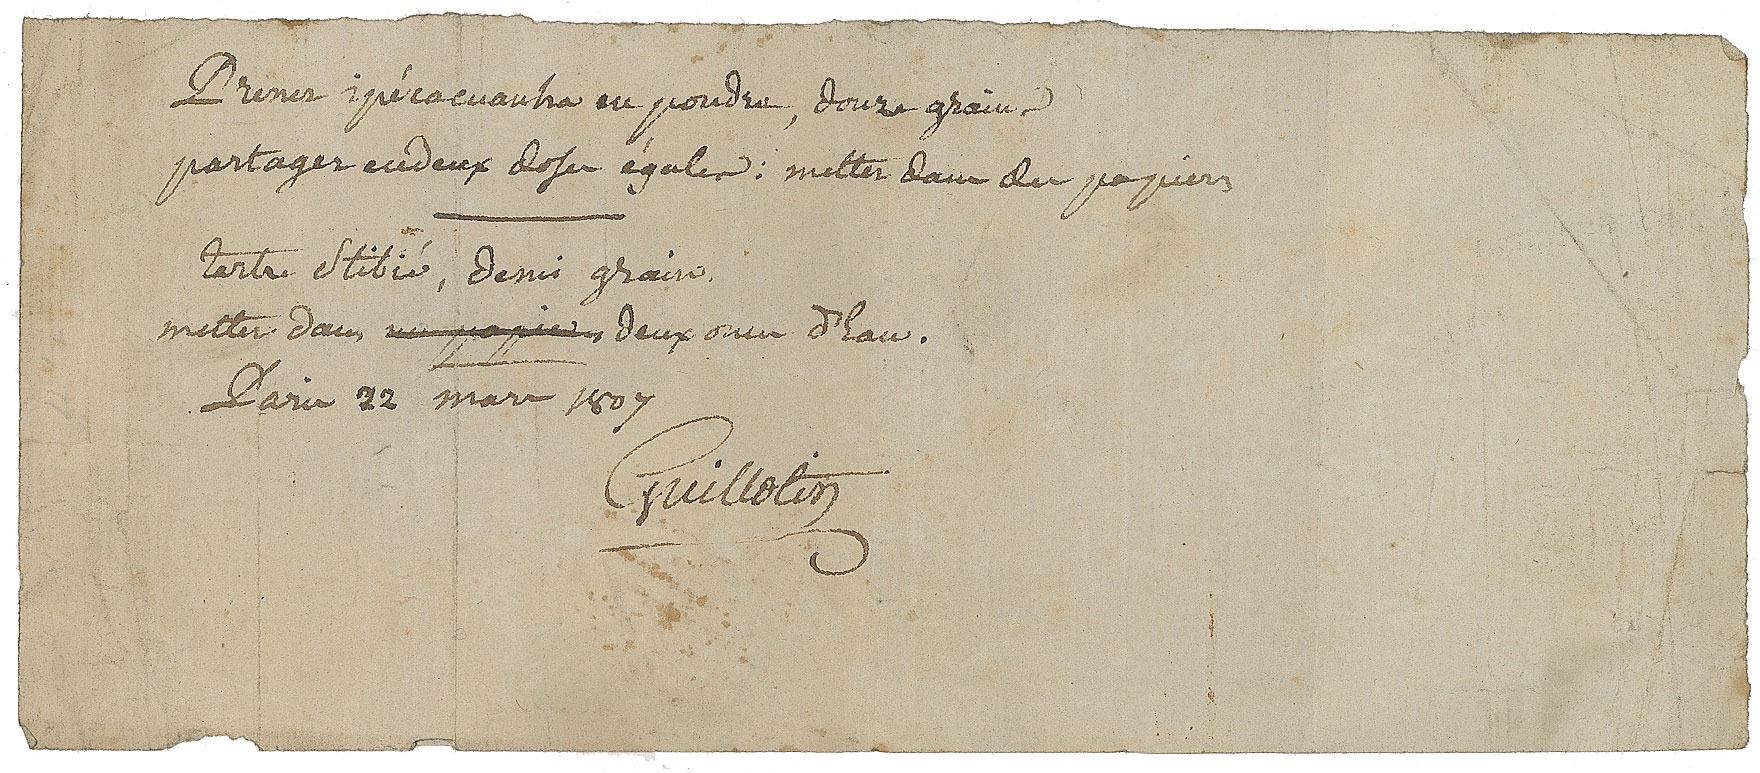 Prenez ipécacuanha en poudre, douze grains
partagez en deux doses égales : mettez dans des papiers
tartre stibié, demi grain.
mettez dans un papier deux onces d'eau.
Paris 22 mars 1807
Guillotin